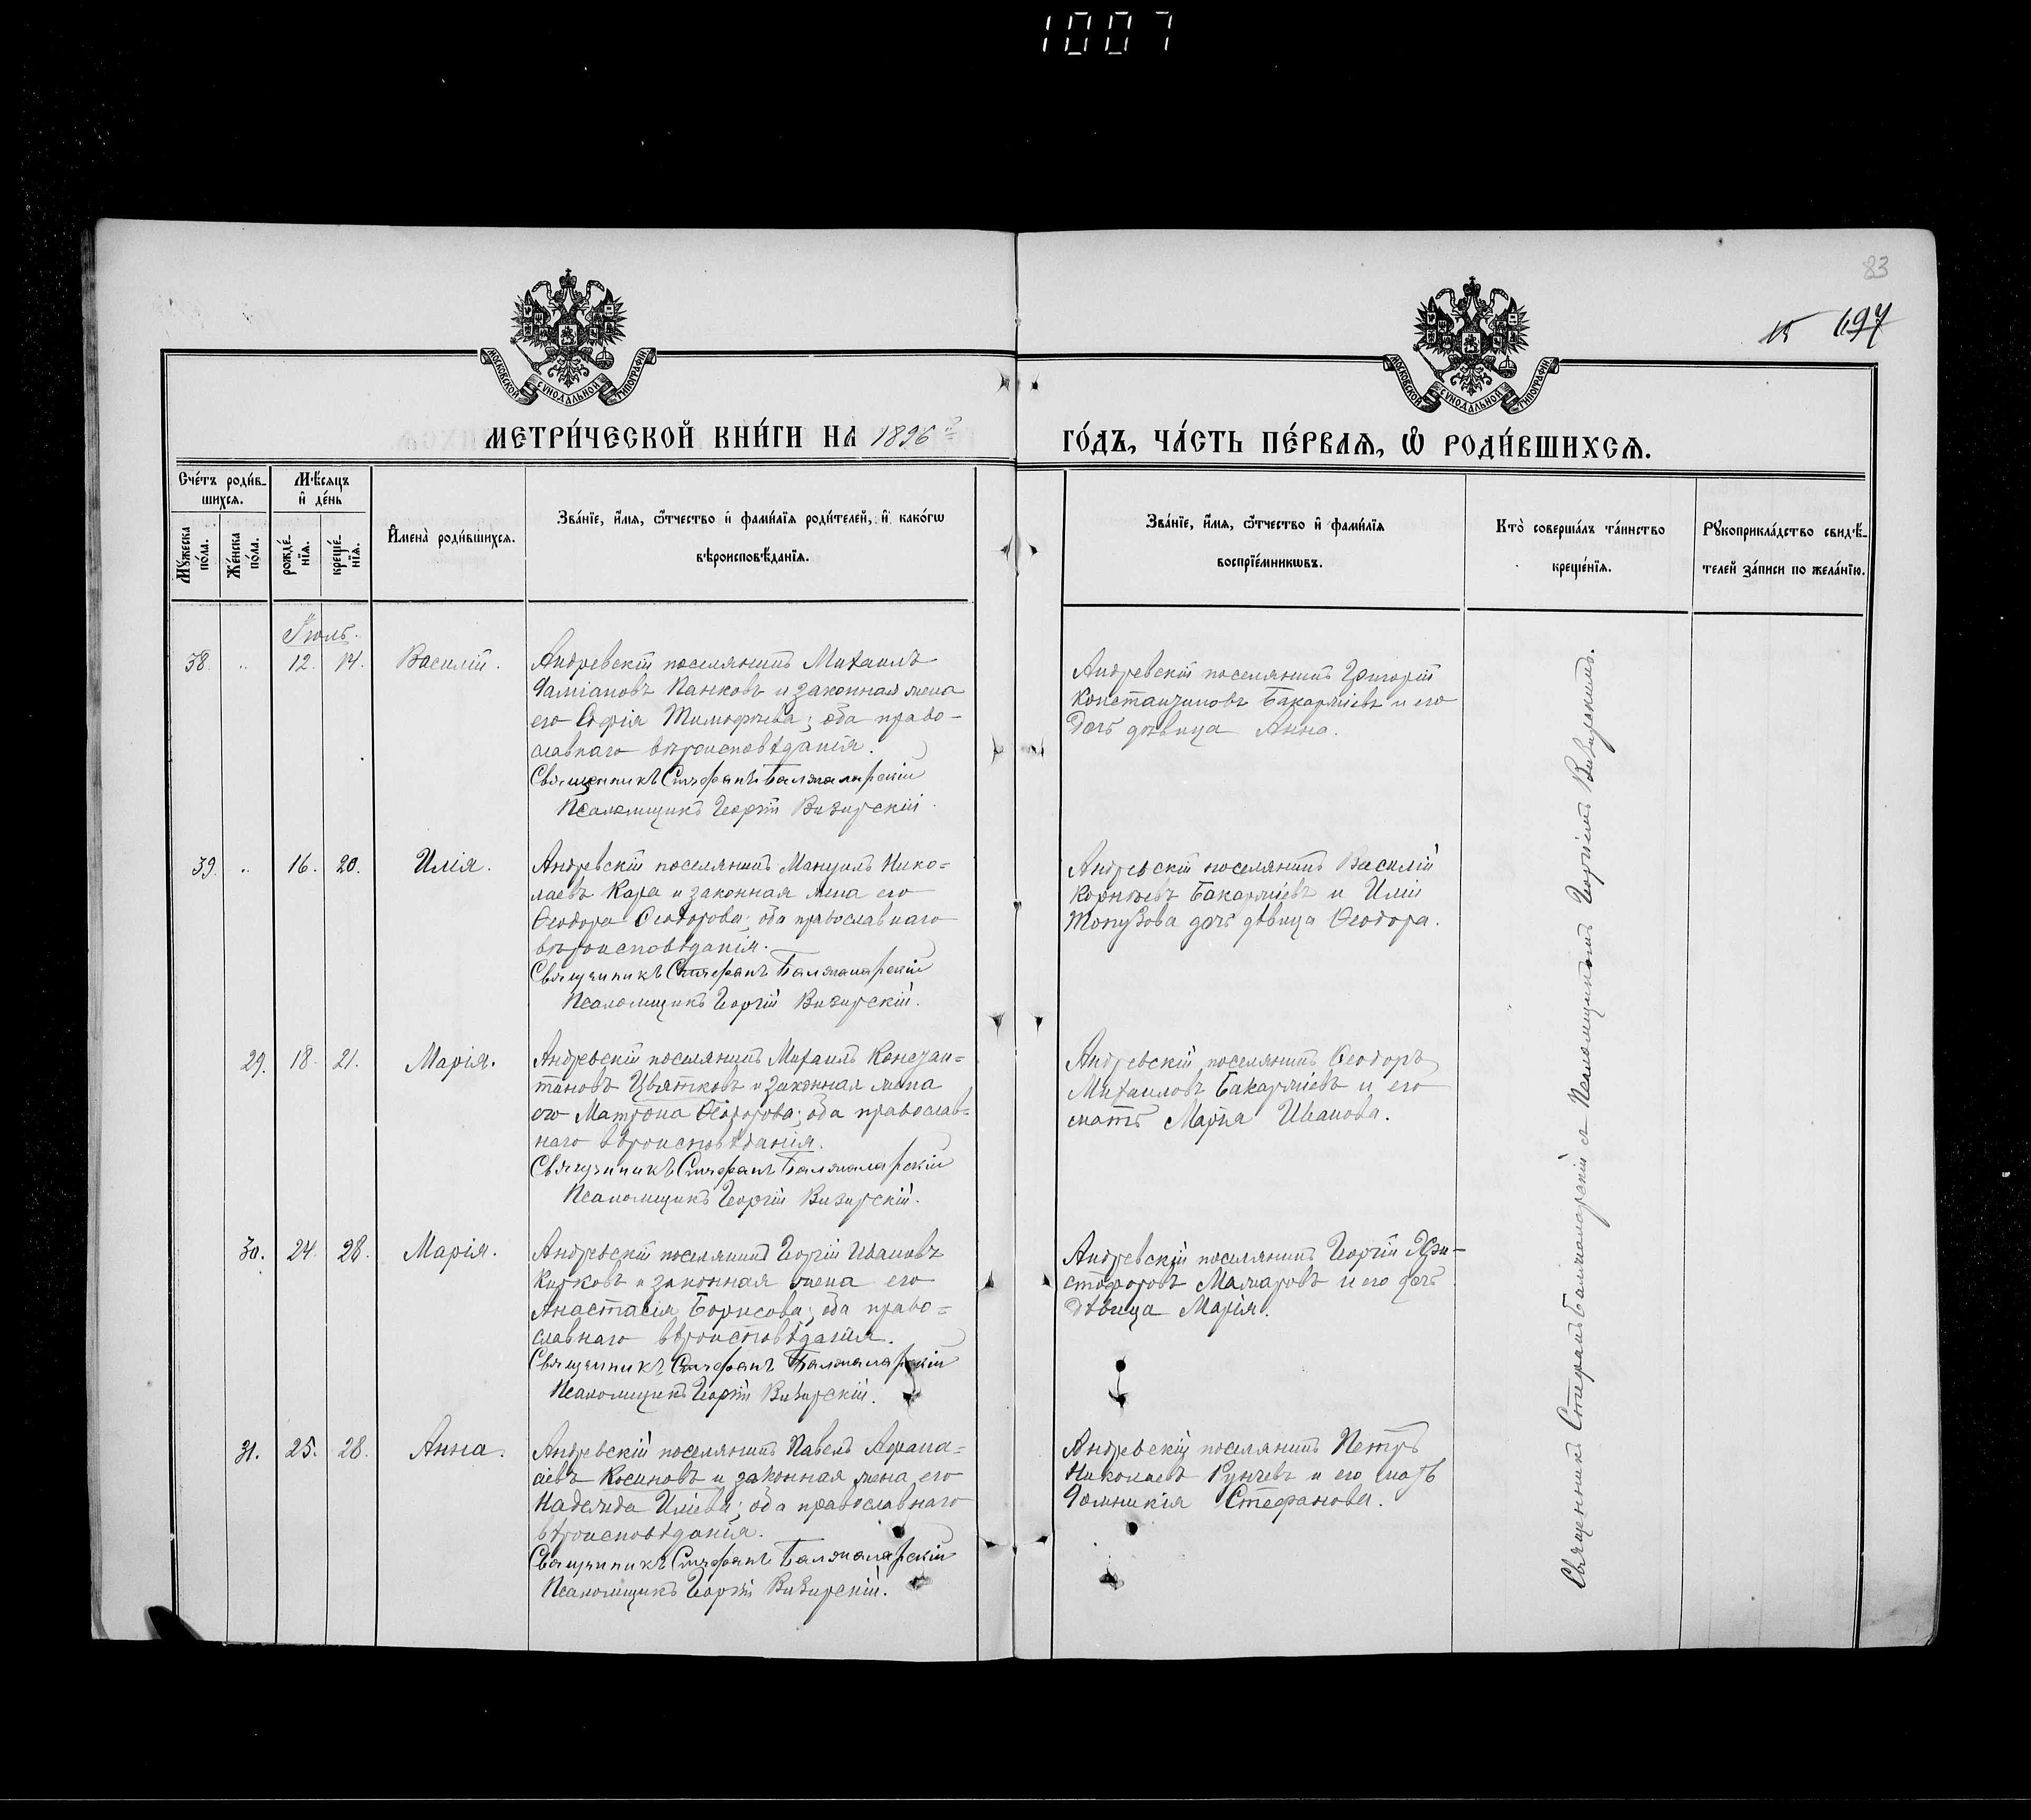 1007
83
15 697
МОСКОВСКОЙ СУНОДАЛЬНОЙ ТИПОГРАФІИ
МОСКОВСКОЙ СУНОДАЛЬНОЙ ТИПОГРАФІИ
МЕТРИ́ЧЕСКОЙ КНИ́ГИ НА 1896 й
ГО́ДЪ, ЧА́СТЬ ПЕ́РВАѦ, Ѡ҆ РОДИ́ВШИХСѦ.
Сче́тъ роди́в-
шихсѧ.
Мꙋжеска по́ла.
Же́нска по́ла.
Мѣ́сѧцъ
и҆ де́нь
рожде́-
нїѧ.
креще́-
нїѧ.
И҆мена̀ роди́вшихсѧ.
Зва́нїе, и҆́мѧ, ѻ҆́тчество и҆ фами́лїѧ роди́телей, и҆ како́гѡ
вѣроисповѣ́данїѧ.
Зва́нїе, и҆́мѧ, ѻ҆́тчество и҆ фами́лїѧ
воспрїе́мникѡвъ.
Кто̀ соверша́лъ та́инство
креще́нїѧ.
Рꙋкоприкла́дство свидѣ́-
телей за́писи по жела́нїю.
Іюль.
38. .. 12. 14. Василій.
Андревскій поселянинъ Михаилъ
Даміановъ Панковъ и законная жена
его Софія Тимофѣева; оба право-
славнаго вѣроисповѣданія.
Священникъ Стефанъ Балжаларскій
Псаломщикъ Георгій Визирскій.
Андревскій поселянинъ Григорій
Константиновъ Бакаржіевъ и его
дочь дѣвица Анна.
39. .. 16. 20. Илія.
Андревскій поселянинъ Мануилъ Нико-
лаевъ Кара и законная жена его
Ѳеодора Ѳеодорова; оба православнаго
вѣроисповѣданія.
Священникъ Стефанъ Балжаларскій
Псаломщикъ Георгій Визирскій.
Андревскій поселянинъ Василій
Корнѣевъ Бакаржіевъ и Иліи
Топузова дочь дѣвица Ѳеодора.
29. 18. 21. Марія.
Андревскій поселянинъ Михаилъ Констан-
тиновъ Цвятковъ и законная жена
его Матрона Ѳеодорова; оба православ-
наго вѣроисповѣданія.
Священникъ Стефанъ Балжаларскій
Псаломщикъ Георгій Визирскій.
Андревскій поселянинъ Ѳеодоръ
Михаиловъ Бакаржіевъ и его
мать Марія Иванова.
30. 24. 28. Марія.
Андревскій поселянинъ Георгій Ивановъ
Кирковъ и законная жена его
Анастасія Борисова; оба право-
славнаго вѣроисповѣданія.
Священникъ Стефанъ Балжаларскій
Псаломщикъ Георгій Визирскій.
Андревскій поселянинъ Георгій Хри-
стофоровъ Мамаровъ и его дочь
дѣвица Марія.
31. 25. 28. Анна.
Андревскій поселянинъ Павелъ Афана-
сіевъ Косиновъ и законная жена его
Надежда Иліева; оба православнаго
вѣроисповѣданія.
Священникъ Стефанъ Балжаларскій
Псаломщикъ Георгій Визирскій.
Андревскій поселянинъ Петръ
Николаевъ Гунчевъ и его мать
Домникія Стефанова.
Священникъ Стефанъ Балжаларскій и Псаломщикомъ Георгіемъ Визирскимъ.